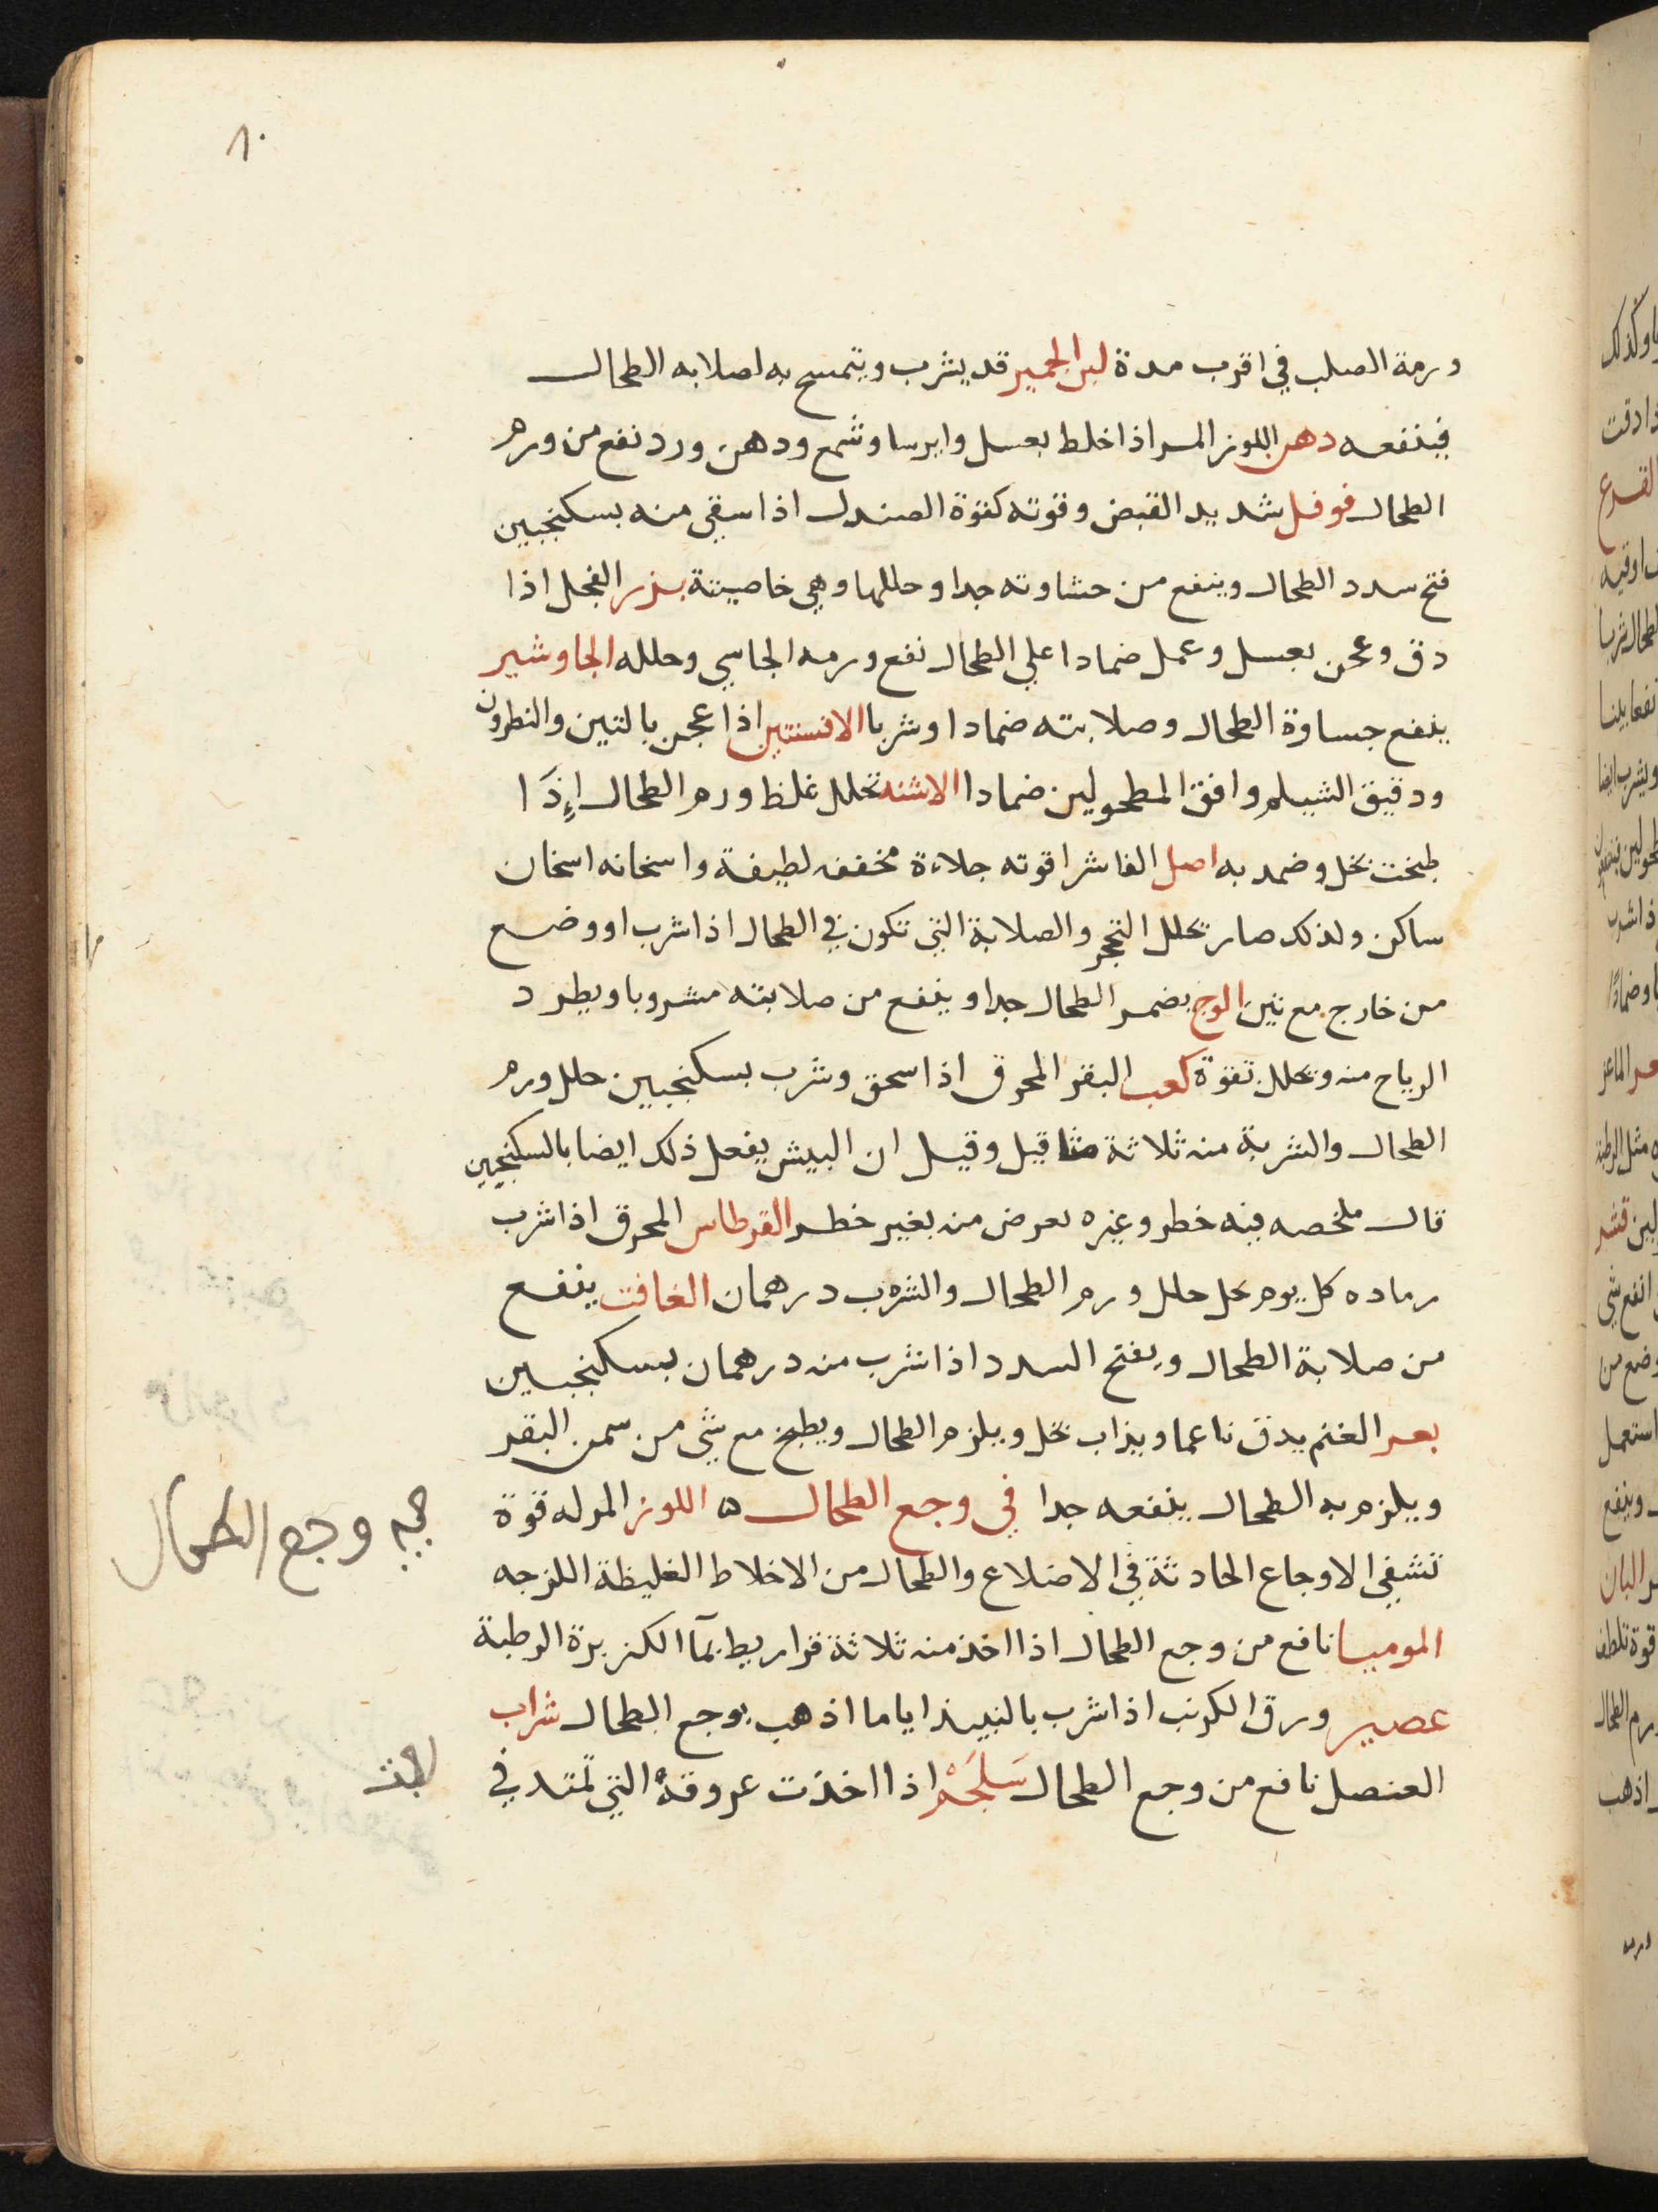 ٨٠
ورمة الصلب في اقرب مدة لبن الحمير قد يشرب ويتمسح به لصلابه الطحال
فينفعه دهن اللوز المر اذا خلط بعسل وايرسا وشمع ودهن ورد نفع من ورم
الطحال فوفل شديد القبض وقوته كقوة الصندل اذا سقي منه بسكنجبين
فتح سدد الطحال وينفع من حشاوته جدا وحللها وهي خاصيتة بزر الفجل اذا
دق وعجن بعسل وعمل ضمادا علي الطحال نفع ورمه الجاسي وحلله الجاوشير
ينفع جساوة الطحال وصلابته ضمادا وشربا الافسنتين اذا عجن بالتين والنطرون
ودقيق الشيلم وافق المطحولين ضمادا الاشنه تحلل غلظ ورم الطحال إِذَا
طبخت بخل وضمد به اصل الفاشرا قوته جلاءة مخففه لطيفة واسخانه اسخان
ساكن ولذلك صار يحلل التحجر والصلابة التي تكون في الطحال اذا شرب او وضع
من خارج مع تين الوج يضمر الطحال جدا وينفع من صلابته مشروبا ويطرد
الرياح منه ويحلل بقوة كعب البقر المحرق اذا سحق وشرب بسكنجبين حلل ورم
الطحال والشربة منه ثلاثة مثاقيل وقيل ان البيش يفعل ذلك ايضا بالسكنجبين
قال ملخصه فيه خطر وغيره يعرض منه بغير خطر القرطاس المحرق اذا شرب
رماده كل يوم بخل حلل ورم الطحال والشرب درهمان الغافت ينفع
من صلابة الطحال ويفتح السدد اذا شرب منه درهمان بسكنجبين
بعر الغنم يدق ناعما ويذاب بخل ويلزم الطحال ويطبخ مع شي من سمن البقر
ويلزم به الطحال ينفعه جدا في وجع الطحال ه اللوز المر له قوة
تشفي الاوجاع الحادثة في الاضلاع والطحال من الاخلاط الغليظة اللزجه
الموميا نافع من وجع الطحال اذا اخذ منه ثلاثة قراريط بمآ الكزبرة الرطبة
عصير ورق الكرنب اذا شرب بالنبيذ اياما اذهب بوجع الطحال شراب
العنصل نافع من وجع الطحال سَلجَمْ اذا اخذت عروقهُ التي تمتد في
وجع الطحال